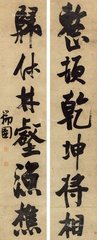 整頓乾坤將相
歸休林壑漁樵
瑞圖